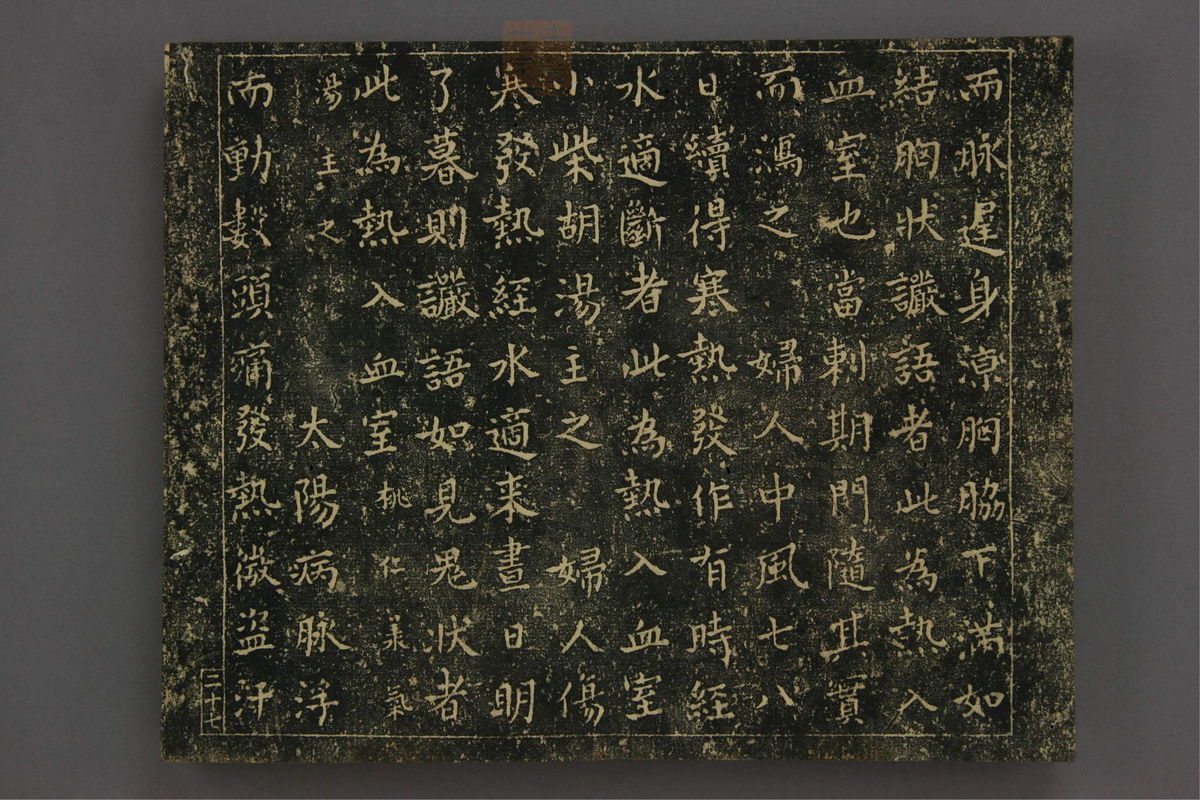 而脉遲身涼胸脇下滿如
結胸狀讖語者此為熱入
血室也當刺期門隨其實
而瀉之 婦人中風七八
日續得寒熱發作有時經
水適斷者此為熱入血室
小柴胡湯主之 婦人傷
寒發熱經水適来晝日明
了暮則讖語如見鬼狀者
此為熱入血室 桃仁承氣
湯主之 太陽病脉浮
而動數頭痛發熱微盗汗
二十七